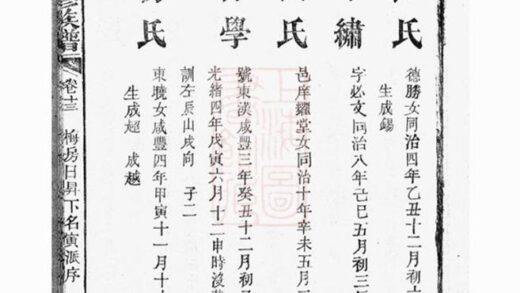 氏
德勝女同治四年乙丑十二月初
生成錫
繡
字必文同治八年己巳五月初三
氏
邑庠耀堂女同治十年辛未五月
學
號東漢咸豐三年癸丑十二月初
光緒四年戊寅六月十二申時沒葬
訓左辰山戌向 子二
氏
東曉女咸豐四年甲寅十一月十
生成超 成越
族譜 卷十三 梅房日昇下名寅派序